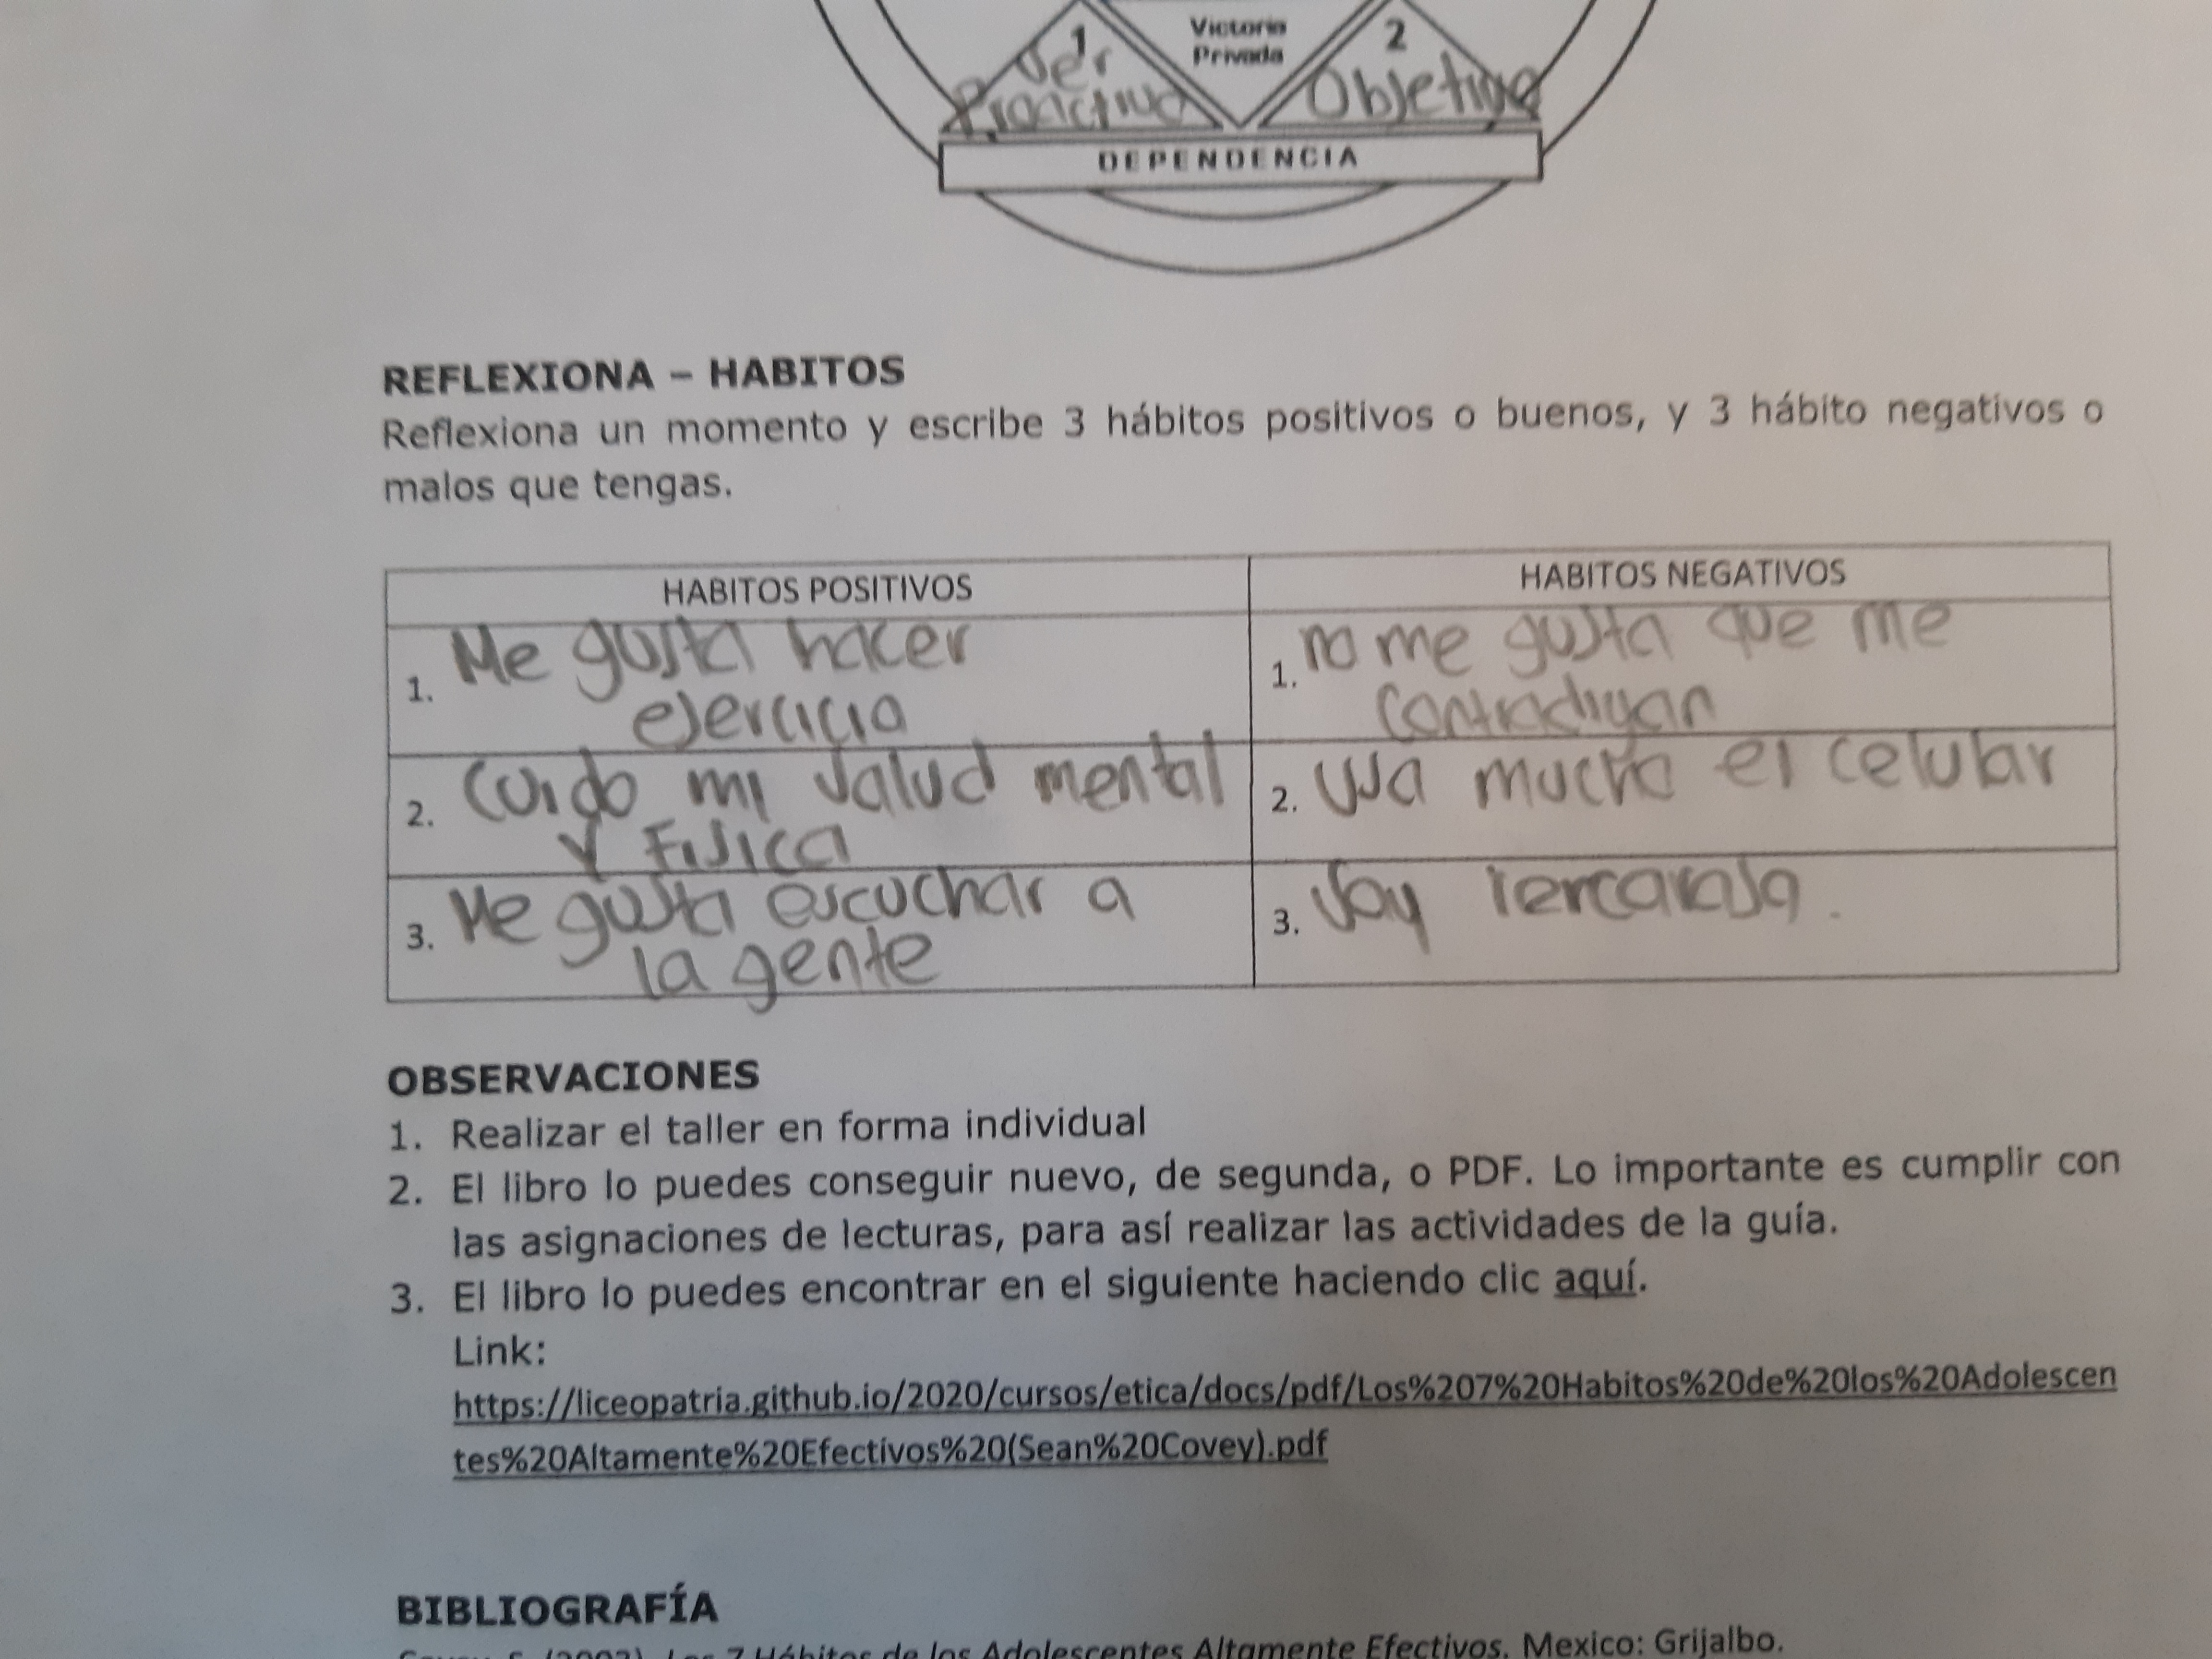 1
Ser
Proactivo
Victoria
Privada
2
Objetivo
DEPENDENCIA
REFLEXIONA – HABITOS
Reflexiona un momento y escribe 3 hábitos positivos o buenos, y 3 hábito negativos o
malos que tengas.
HABITOS POSITIVOS
HABITOS NEGATIVOS
1. Me gusta hacer
ejercicio
1. no me gusta que me
contradigan
2. Cuido mi salud mental
y Fisica
2. Uso mucho el celular
3. Me gusta escuchar a
la gente
3. Soy rencorosa.
OBSERVACIONES
1. Realizar el taller en forma individual
2. El libro lo puedes conseguir nuevo, de segunda, o PDF. Lo importante es cumplir con
las asignaciones de lecturas, para así realizar las actividades de la guía.
3. El libro lo puedes encontrar en el siguiente haciendo clic aquí.
Link:
https://liceopatria.github.io/2020/cursos/etica/docs/pdf/Los%207%20Habitos%20de%20los%20Adolescen
tes%20Altamente%20Efectivos%20(Sean%20Covey).pdf
BIBLIOGRAFÍA
Los 7 Hábitos de los Adolescentes Altamente Efectivos. Mexico: Grijalbo.